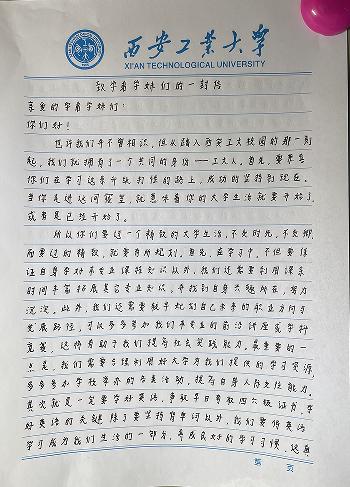 西安工业大学
XI'AN TECHNOLOGICAL UNIVERSITY
致学弟学妹们的一封信
亲爱的学弟学妹们：
你们好！
也许我们并不曾相识，但从踏入西安工大校园的那一刻
起，我们就拥有了一个共同的身份——工大人。首先，
你们在学习这条
当你走进这间教室，就意味着你的大学生活就要开始了，
或者是已经开始了。
所以你们要过一个精致的大学生活，不负时光，不负卿，
而要过的精致，就要有所规划。首先，在学习中，不但要保
证自身学好本专业课程知识以外，我们还需要利用课余
时间丰富拓展其它专业知识，寻找到自身兴趣所在，努力
沉淀。此外，我们还需要规划自己未来的职业方向与
发展路径，可以多多参加我们本专业的前沿讲座或学科
竞赛，这将有助于我们提高社会实践能力。最重要的一
点是，我们需要合理利用好大学为我们提供的学习资源，
多多参加学校举办的各类活动，提高自身人际交往能力。
其次就是一定要学好英语，争取早日考取四六级证书，学
好英语的关键除了要坚持背单词以外，我们要将英语
学习成为我们生活的一部分，养成良好的学习习惯，这
第 页